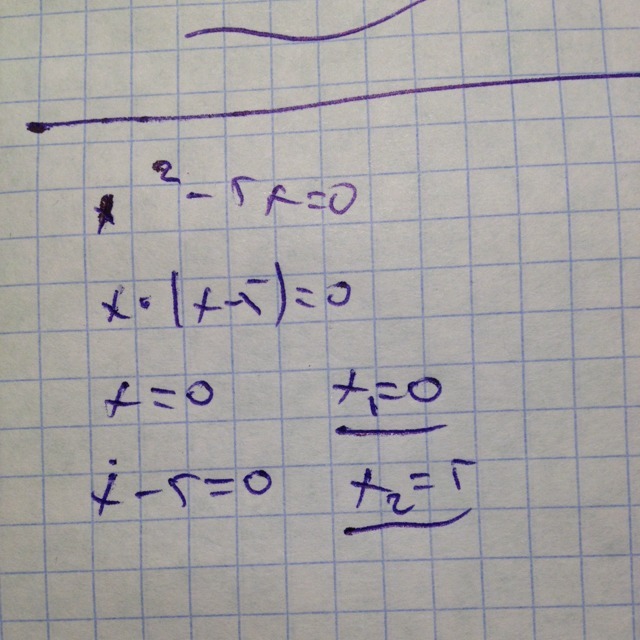 ² - 5x=0
x·(x-5)=0
x=0 x₁=0
x-5=0 x₂=5